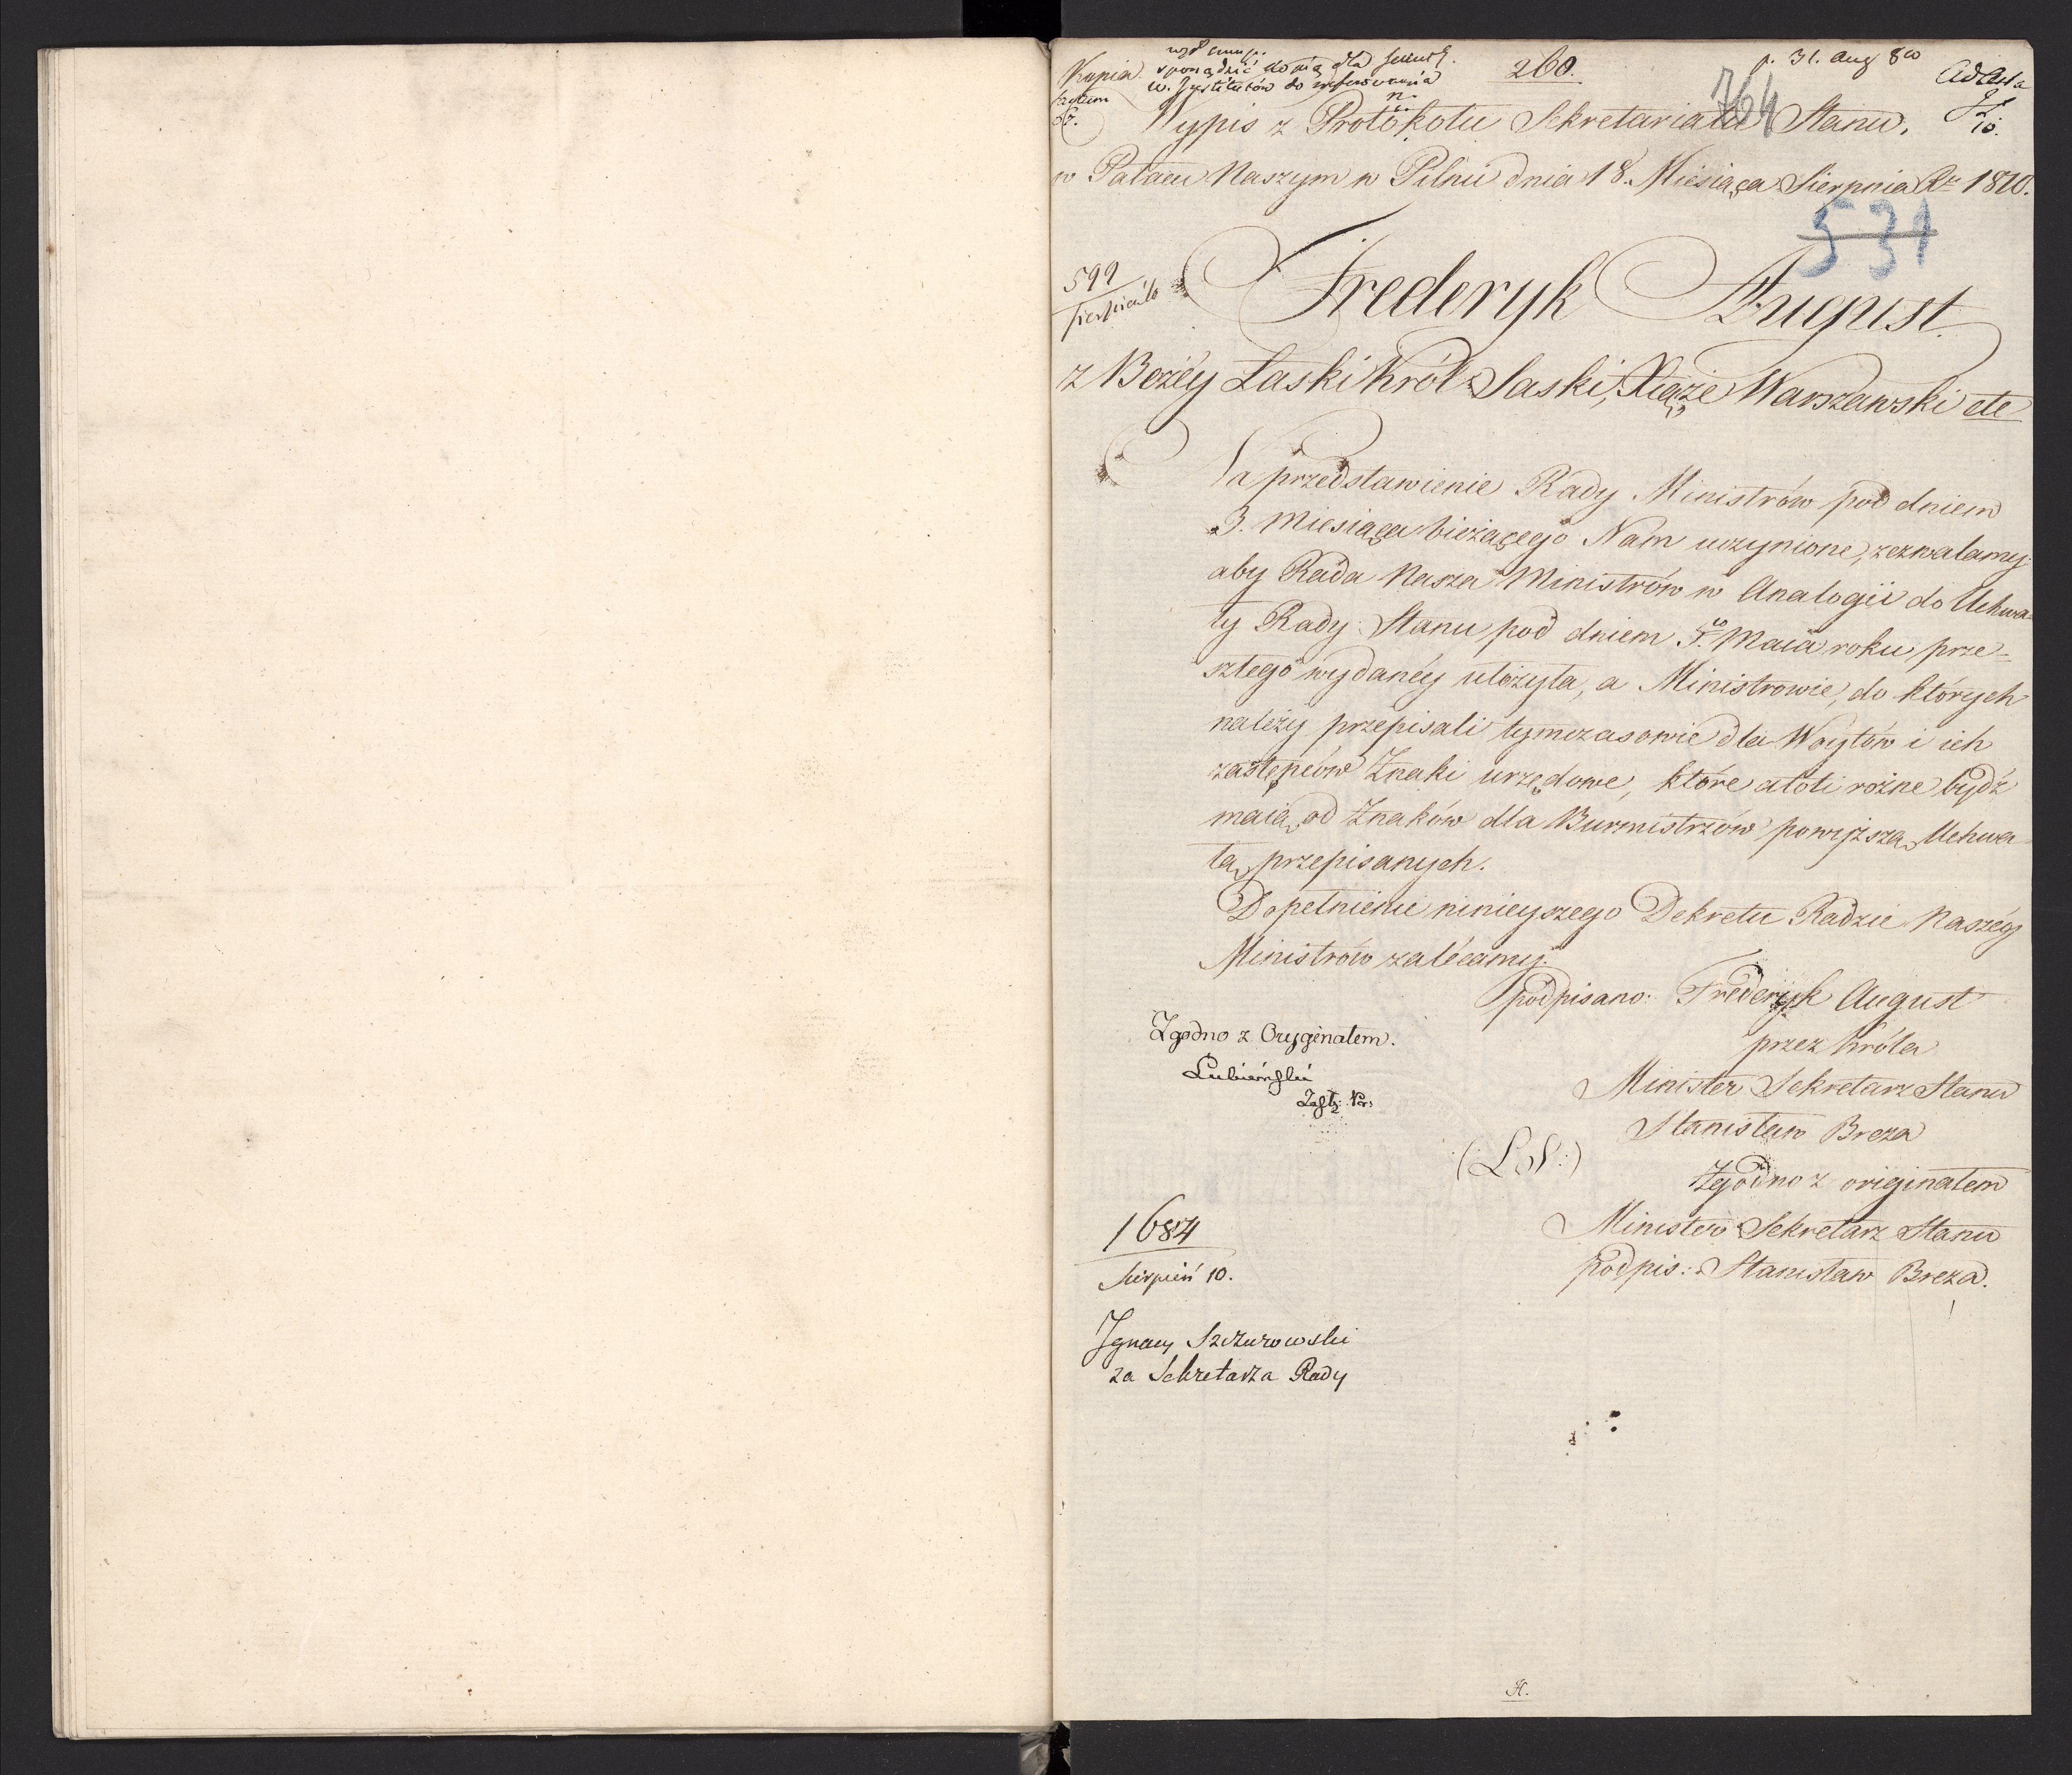 Kopia
sporządzić kopią dla
w. Jnstitutów do
260.
p. 31. Aug 810
Ad Acta
764
10.
n.
Wypis z Protokołu Sekretariatu Stanu.
w Pałacu Naszym w Pilnic dnia 18. Miesiąca Sierpnia Ru 1810.
531
599
Sierpień 10
Frederyk August
z Bożéy Łaski Król Saski, Xiążę Warszawski etc
Na przedstawienie Rady Ministrów pod dniem
3. Miesiąca bieżącego Nam uczynione, zezwalamy
aby Rada Nasza Ministrów w Analogii do Uchwa-
ły Rady Stanu pod dniem 5. Maia roku prze-
szłego wydanéy ułożyła, a Ministrowie, do których
należy przepisali tymczasowie dla Woytów i ich
zastępców Znaki urzędowe, które atoli rożne bydź
maią od Znaków dla Burmistrzów powyższą Uchwa-
łą przepisanych.
Dopełnienie ninieyszego Dekretu Radzie Naszéy
Ministrów zalecamy.
podpisano: Frederyk August
przez Króla
Minister Sekretarz Stanu
Stanisław Breza
Zgodno z Oryginałem.
Lubieński
Zastę: Pr:
(L.S.)
Zgodno z originałem
Minister Sekretarz Stanu
podpis: Stanisław Breza.
1684
Sierpień 10.
Jgnacy Szczurowski
za Sekretarza Rady
H.